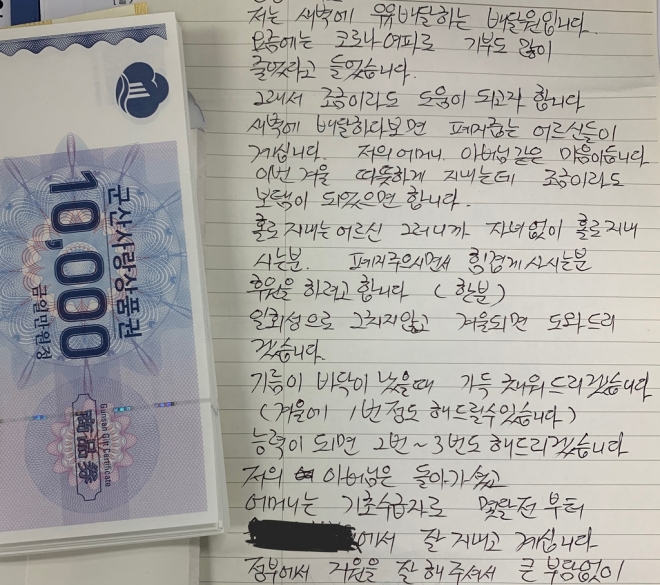 저는 새벽에 우유배달하는 배달원입니다.
요즘에는 코로나여파로 기부도 많이
줄었다고 들었습니다.
그래서 조금이라도 도움이 되고자 합니다
새벽에 배달하다보면 폐지줍는 어르신들이
계십니다. 저의어머니, 아버님같은 마음이듭니다
이번 겨울 따뜻하게 지내는데 조금이라도
보탬이 되었으면 합니다.
홀로 지내는어르신 그러니까 자녀없이 홀로지내
시는분. 폐지주으시면서 힘겹게 사시는분
후원을 하려고 합니다 (한분)
일회성으로 그치지않고 겨울되면 도와드리
겠습니다.
기름이 바닥이 났을때 가득 채워드리겠습니다
(겨울에 1번정도 해드릴수있습니다)
능력이 되면 2번~3번도 해드리겠습니다
저의 아버님은 돌아가셨고
어머니는 기초수급자로 몇달전 부터
에서 잘 지내고 계십니다
정부에서 지원을 잘 해주셔서 큰 부담없이
군산사랑상품권
10,000
금일만원정
Gunsan Gift Certificate
商品券